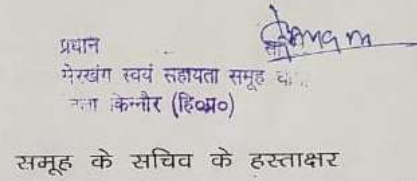 प्रधान
गेरखंग स्वयं सहायता समूह
किन्नौर (हि०प्र०)
समूह के सचिव के हस्ताक्षर